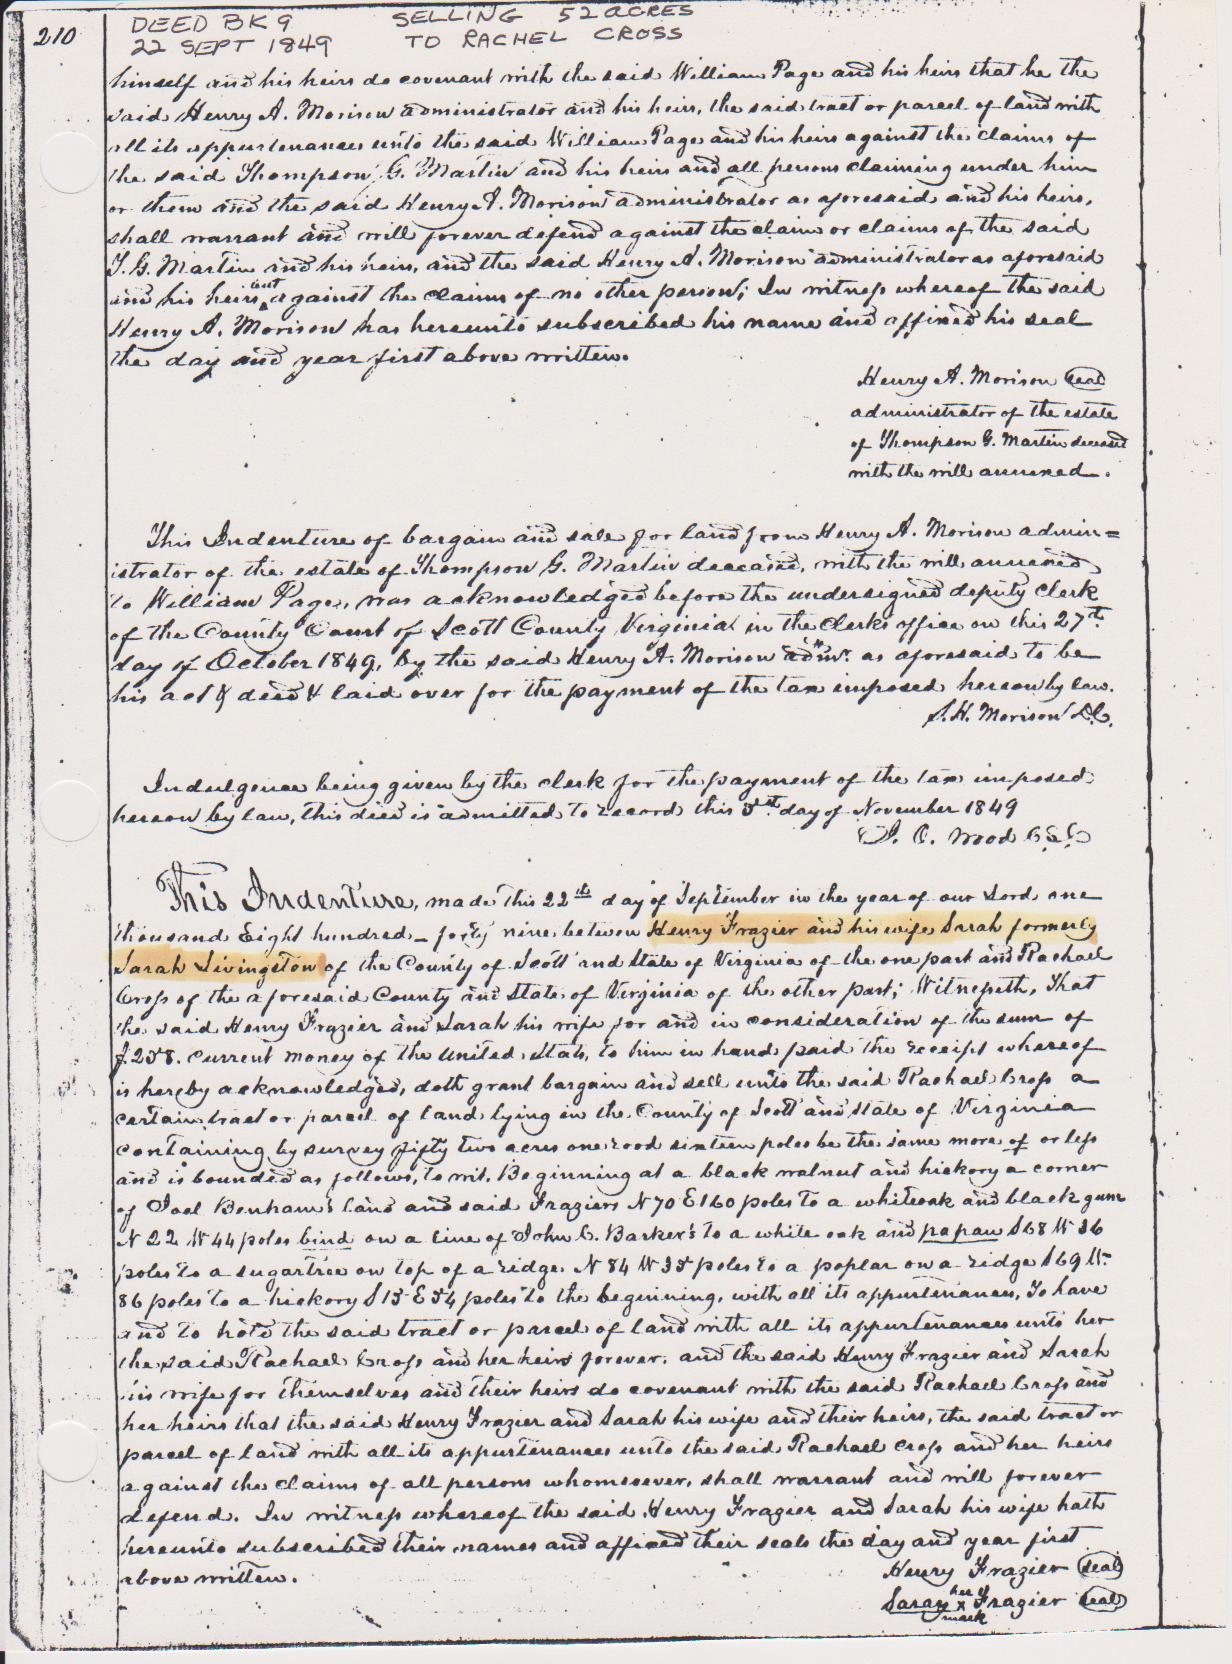 210
DEED BK 9 SELLING 52 ACRES
22 SEPT 1849 TO RACHEL CROSS
himself and his heirs do covenant with the said William Page and his heirs that he the
said Henry A. Morison administrator and his heirs, the said tract or parcel of land with
all its appurtenances unto the said William Page and his heirs against the claims of
the said Thompson G. Martin and his heirs and all persons claiming under him
or them and the said Henry A. Morison administrator as aforesaid and his heirs,
shall warrant and will forever defend against the claim or claims of the said
T. G. Martin and his heirs, and the said Henry A. Morison administrator as aforesaid
and his heirs but against the claims of no other person; In witness whereof the said
Henry A. Morison has hereunto subscribed his name and affixed his seal
the day and year first above written.
Henry A. Morison seal
administrator of the estate
of Thompson G. Martin deceased
with the will annexed.
This Indenture of bargain and sale for land from Henry A. Morison admin=
istrator of the estate of Thompson G. Martin deceased, with the will annexed
to William Page, was acknowledged before the undersigned deputy clerk
of the County Court of Scott County Virginia in the clerks office on this 27th
day of October 1849, by the said Henry A. Morison admr. as aforesaid to be
his act & deed & laid over for the payment of the tax imposed hereon by law.
S. H. Morison D.C.
Indulgence being given by the clerk for the payment of the tax imposed
hereon by law, this deed is admitted to record this 5th day of November 1849
J. O. Wood C.S.C.
This Indenture, made this 22th day of September in the year of our Lord one
thousand Eight hundred - forty nine between Henry Frazier and his wife Sarah formerly
Sarah Livingston of the County of Scott and State of Virginia of the one part and Rachael
Cross of the aforesaid County and State of Virginia of the other part; Witnesseth, That
the said Henry Frazier and Sarah his wife for and in consideration of the sum of
$258. current money of the United States, to him in hand paid the receipt whereof
is hereby acknowledged, doth grant bargain and sell unto the said Rachael Cross a
certain tract or parcel of land lying in the County of Scott and State of Virginia
containing by survey fifty two acres one rood sixteen poles be the same more of or less
and is bounded as follows, to wit. Beginning at a black walnut and hickory a corner
of Joel Benham's land and said Fraziers N 70 E 160 poles to a whiteoak and black gum
N 22 W 44 poles bind on a line of John C. Barker's to a white oak and papaw S 68 W 36
poles to a sugartree on top of a ridge. N 84 W 35 poles to a poplar on a ridge S 69 W.
86 poles to a hickory S 15 E 54 poles to the beginning, with all its appurtenances, To have
and to hold the said tract or parcel of land with all its appurtenances unto her
the said Rachael Cross and her heirs forever. and the said Henry Frazier and Sarah
his wife for themselves and their heirs do covenant with the said Rachael Cross and
her heirs that the said Henry Frazier and Sarah his wife and their heirs, the said tract or
parcel of land with all its appurtenances unto the said Rachael Cross and her heirs
against the claims of all persons whomesever, shall warrant and will forever
defend. In witness whereof the said Henry Frazier and Sarah his wife hath
hereunto subscribed their names and affixed their seals the day and year first
above written.
Henry Frazier seal
Saray her x mark Frazier seal